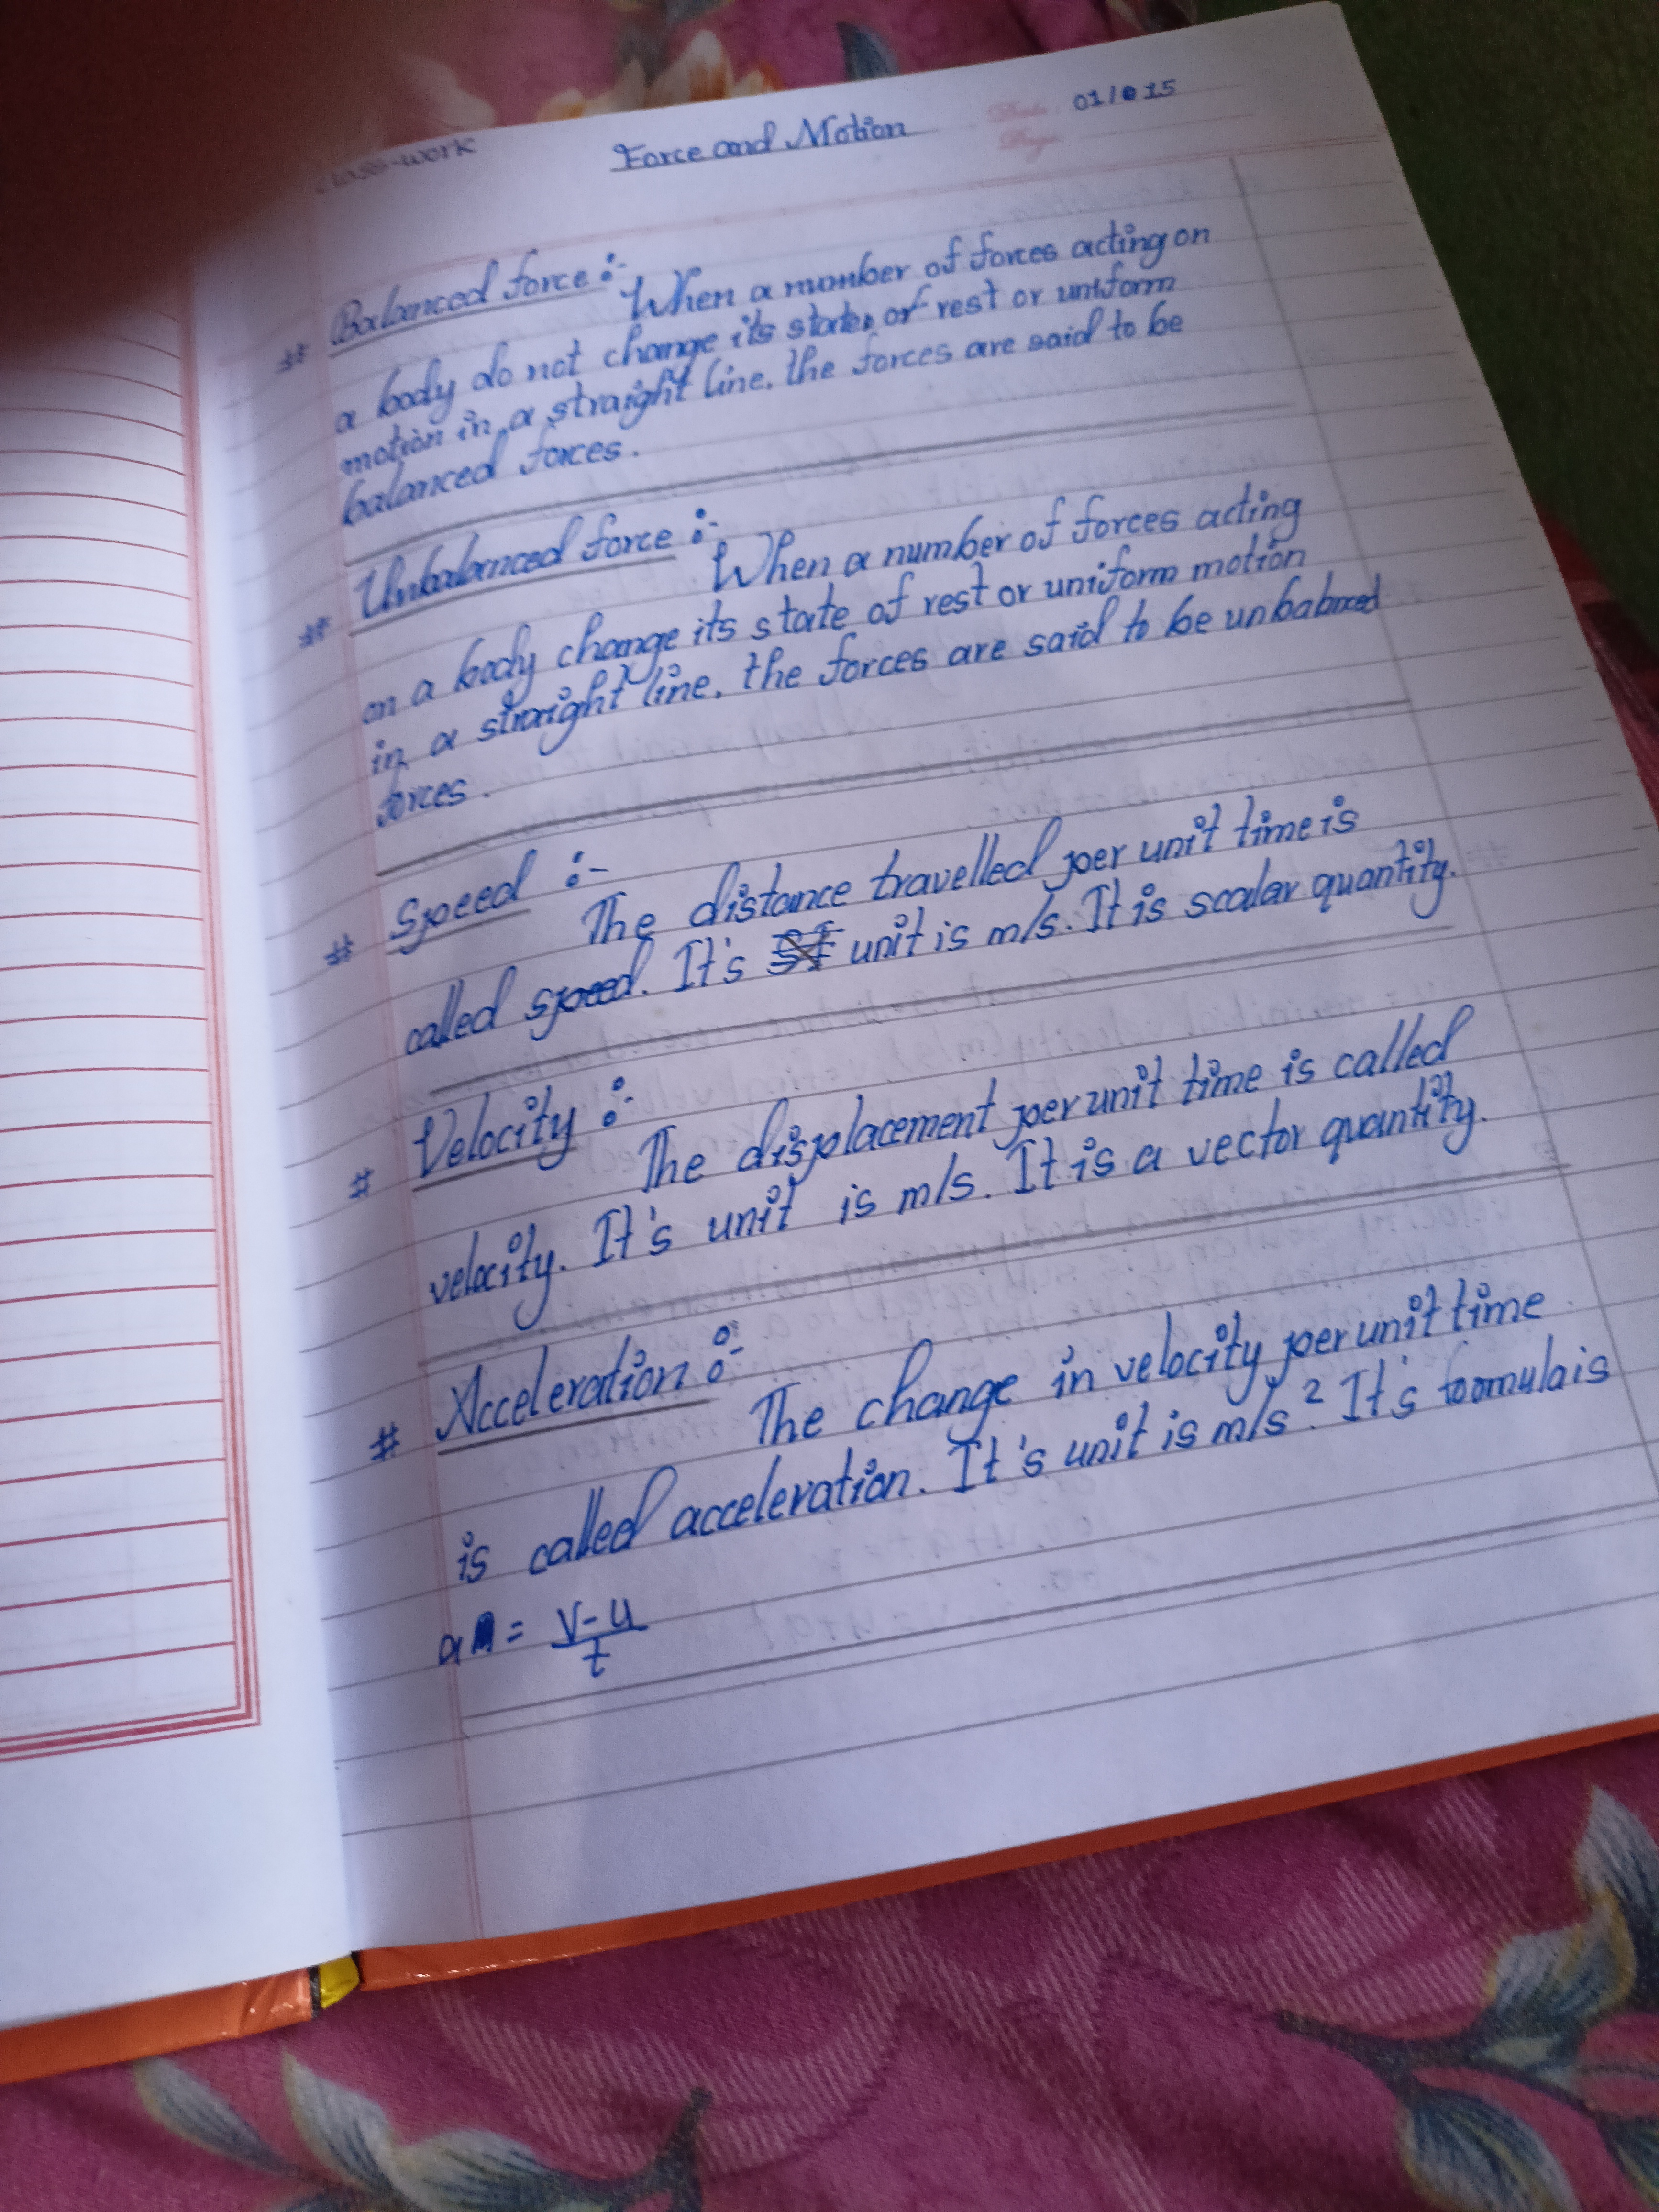 class-work
Force and Motion
01/015
# Balanced force :- When a number of forces acting on
a body do not change its state of rest or uniform
motion in a straight line, the forces are said to be
balanced forces.
# Unbalanced force :- When a number of forces acting
on a body change its state of rest or uniform motion
in a straight line, the forces are said to be unbalanced
forces.
# Speed :- The distance travelled per unit time is
called speed. It's unit is m/s. It is scalar quantity.
# Velocity :- The displacement per unit time is called
velocity. It's unit is m/s. It is a vector quantity.
# Acceleration :- The change in velocity per unit time
is called acceleration. It's unit is m/s². It's formula is
a = v-u/t